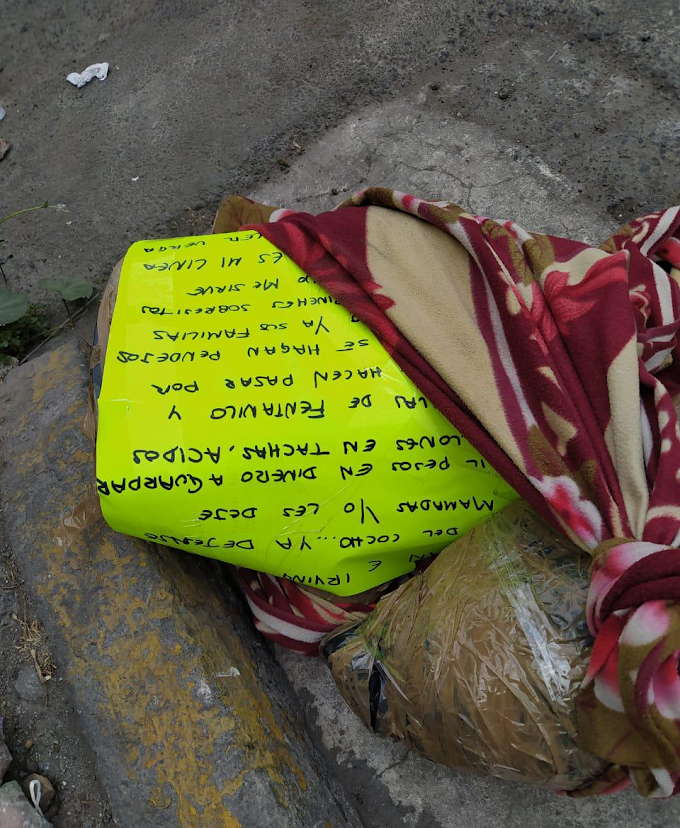 E IRVING
DEL COCHO... YA DEJENSE
MAMADAS YO LES DEJE
PESOS EN DINERO A GUARDAR
EN TACHAS, ACIDOS
DE FENTANILO Y
HACEN PASAR POR
SE HAGAN PENDEJOS
YA SUS FAMILIAS
SOBRESITOS
ME SIRVE
ES MI LINEA
VERGA